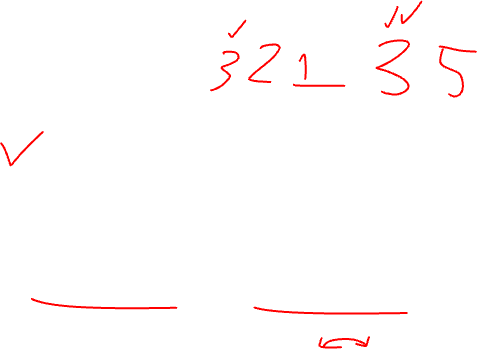 321 35